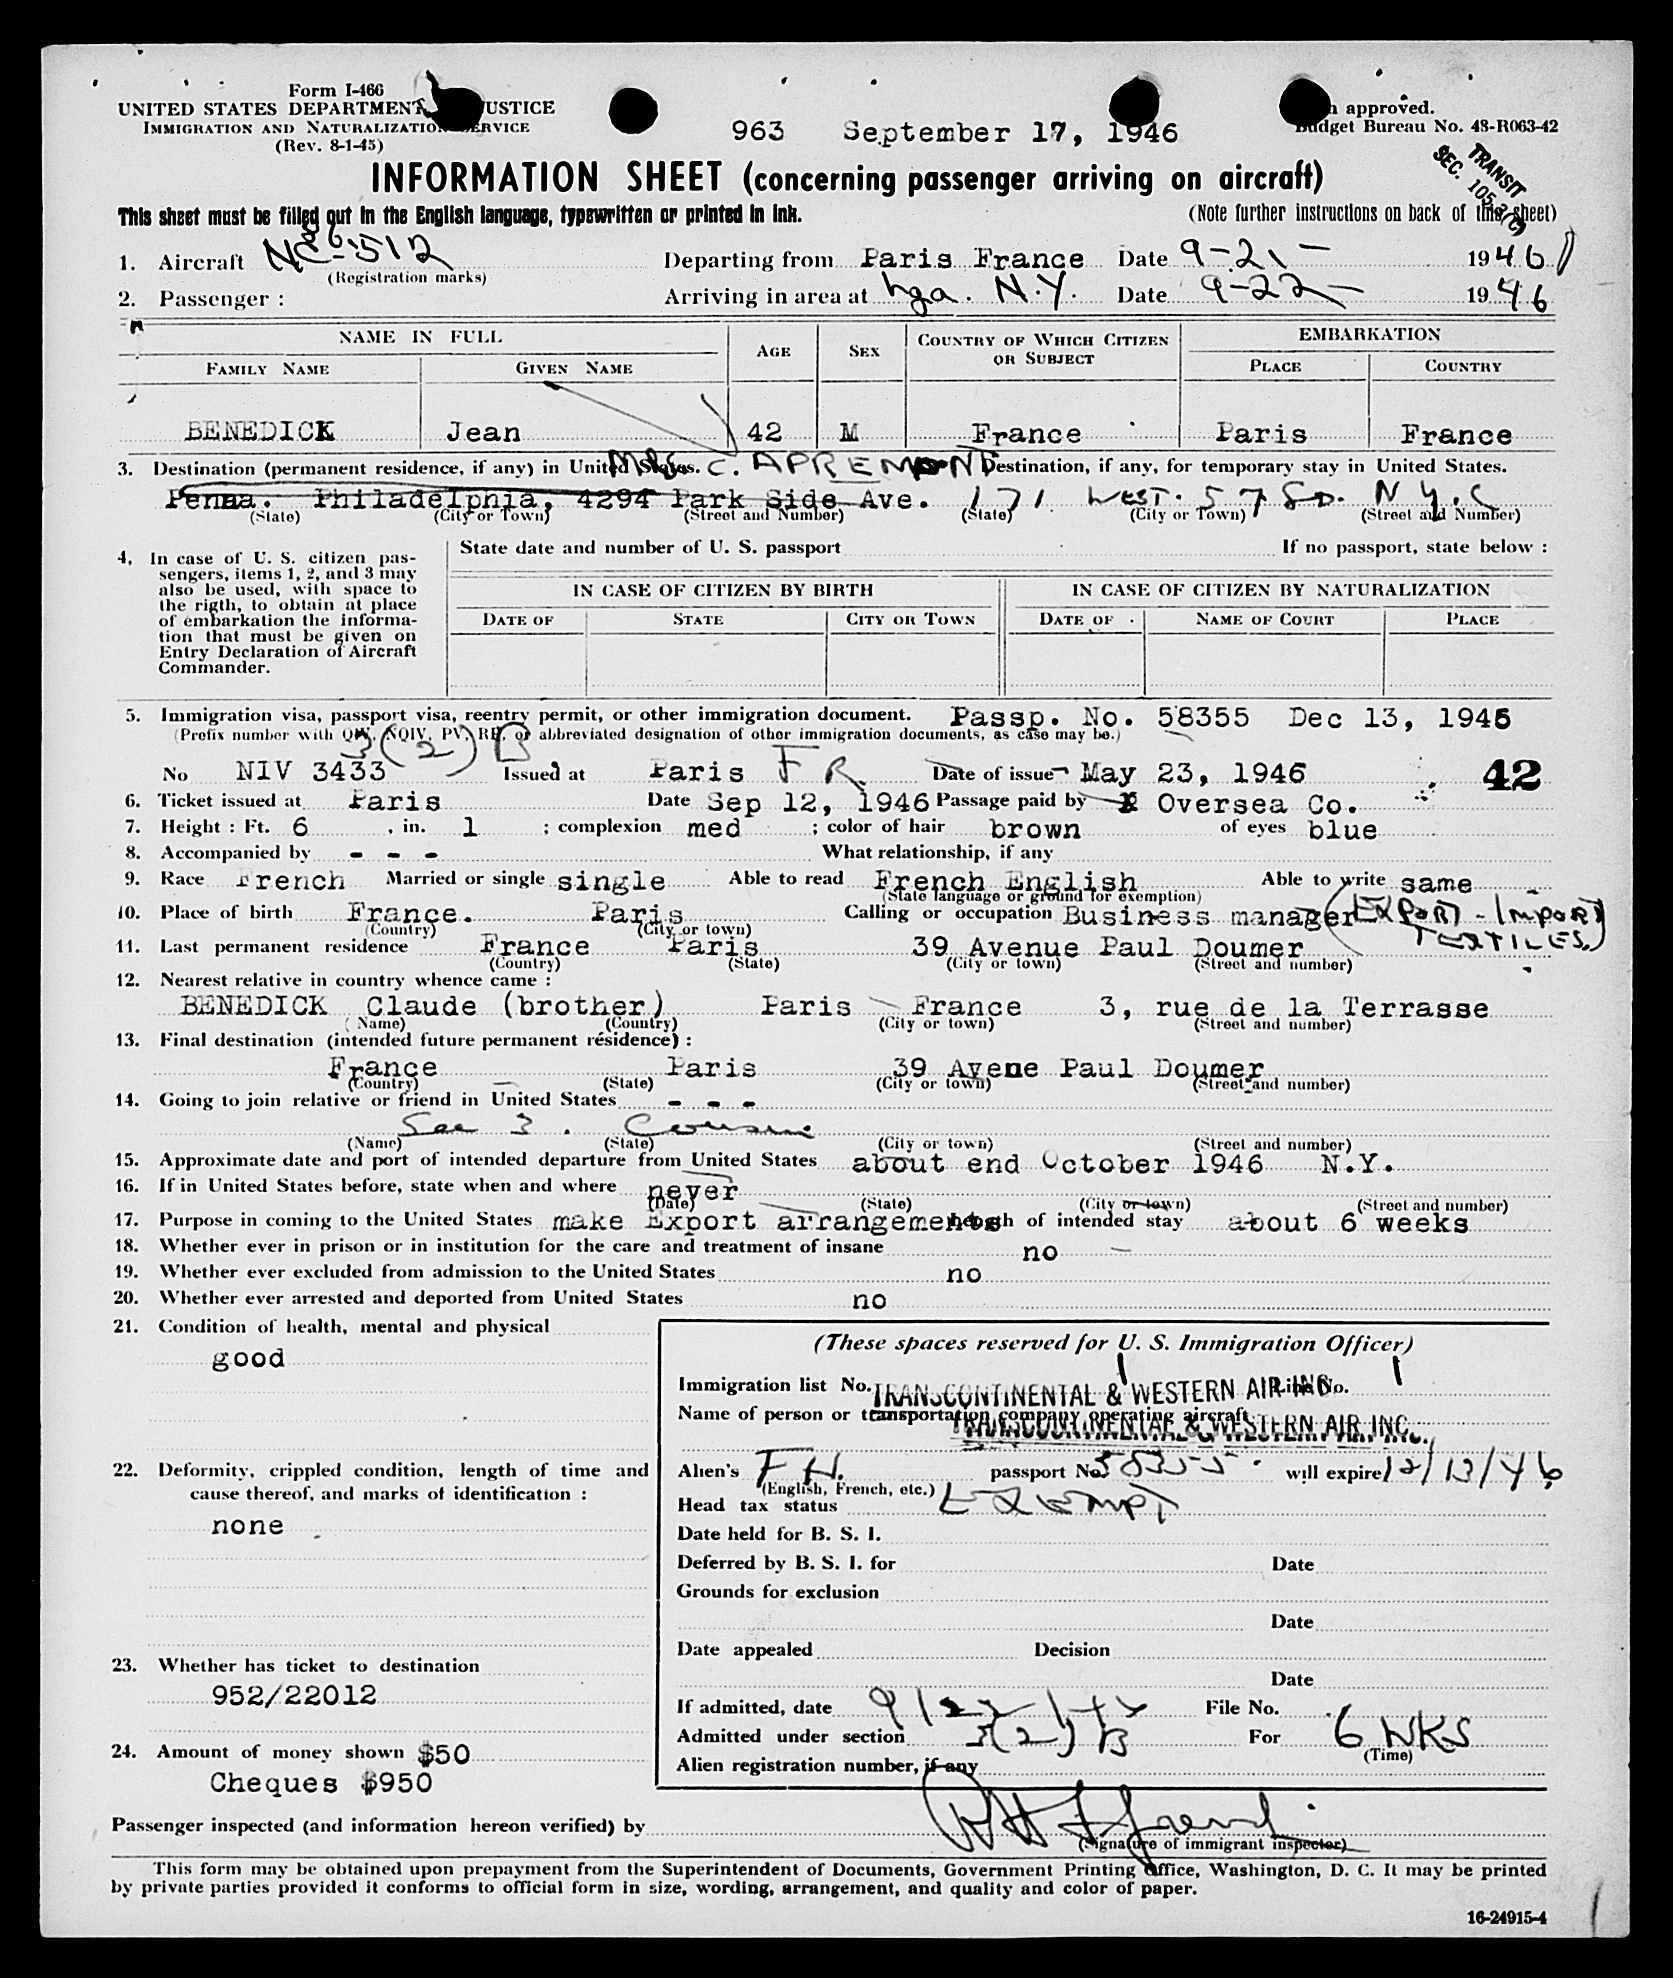 Form I-466
UNITED STATES DEPARTMENT USTICE
IMMIGRATION AND NATURALIZATION SERVICE
(Rev. 8-1-45)
963 September 17, 1946
approved.
Budget Bureau No. 43-R063-42
TRANSIT
SEC. 105.3(C)
INFORMATION SHEET (concerning passenger arriving on aircraft)
This sheet must be filled out in the English language, typewritten or printed in ink.
(Note further instructions on back of this sheet)
1. Aircraft NC-512 Departing from Paris France Date 9-21- 1946
(Registration marks)
2. Passenger : Arriving in area at lga. N.Y. Date 9-22- 1946
NAME IN FULL AGE SEX COUNTRY OF WHICH CITIZEN OR SUBJECT EMBARKATION
FAMILY NAME GIVEN NAME PLACE COUNTRY
BENEDICK Jean 42 M France Paris France
3. Destination (permanent residence, if any) in United States. MRS. C. APREMONT Destination, if any, for temporary stay in United States.
Penna. Philadelphia, 4294 Park Side Ave. 171 WEST. 57 SD. N.Y.C
(State) (City or Town) (Street and Number) (State) (City or Town) (Street and Number)
4, In case of U. S. citizen pas-
sengers, items 1, 2, and 3 may
also be used, with space to
the rigth, to obtain at place
of embarkation the informa-
tion that must be given on
Entry Declaration of Aircraft
Commander.
State date and number of U. S. passport If no passport, state below :
IN CASE OF CITIZEN BY BIRTH IN CASE OF CITIZEN BY NATURALIZATION
DATE OF STATE CITY OR TOWN DATE OF NAME OF COURT PLACE
5. Immigration visa, passport visa, reentry permit, or other immigration document. Passp. No. 58355 Dec 13, 1945
(Prefix number with QIV, NQIV, PV, RP, or abbreviated designation of other immigration documents, as case may be.)
3(2)B
No NIV 3433 Issued at Paris FR. Date of issue May 23, 1946 42
6. Ticket issued at Paris Date Sep 12, 1946 Passage paid by Oversea Co.
7. Height : Ft. 6 , in. 1 ; complexion med ; color of hair brown of eyes blue
8. Accompanied by - - - What relationship, if any
9. Race French Married or single single Able to read French English Able to write same
(State language or ground for exemption)
10. Place of birth France. Paris Calling or occupation Business manager (EXPORT - IMPORT
TEXTILES.)
(Country) (City or town)
11. Last permanent residence France Paris 39 Avenue Paul Doumer
(Country) (State) (City or town) (Street and number)
12. Nearest relative in country whence came :
BENEDICK Claude (brother) Paris France 3, rue de la Terrasse
(Name) (Country) (City or town) (Street and number)
13. Final destination (intended future permanent résidence) :
France Paris 39 Avene Paul Doumer
(Country) (State) (City or town) (Street and number)
14. Going to join relative or friend in United States - - -
See 3. Cousin
(Name) (State) (City or town) (Street and number)
15. Approximate date and port of intended departure from United States about end October 1946 N.Y.
16. If in United States before, state when and where never
(Date) (State) (City or town) (Street and number)
17. Purpose in coming to the United States make Export arrangements Length of intended stay about 6 weeks
18. Whether ever in prison or in institution for the care and treatment of insane no
19. Whether ever excluded from admission to the United States no
20. Whether ever arrested and deported from United States no
21. Condition of health, mental and physical
good
22. Deformity, crippled condition, length of time and
cause thereof, and marks of identification :
none
23. Whether has ticket to destination
952/22012
24. Amount of money shown $50
Cheques $950
(These spaces reserved for U. S. Immigration Officer)
Immigration list No. 1 Line No. 1
TRANSCONTINENTAL & WESTERN AIR INC.
Name of person or transportation company operating aircraft
TRANSCONTINENTAL & WESTERN AIR INC.
Alien's FH. passport No. 58355. will expire 12/13/46
(English, French, etc.)
Head tax status EXEMPT
Date held for B. S. I.
Deferred by B. S. I. for Date
Grounds for exclusion
Date
Date appealed Decision
Date
If admitted, date 9/22/46 File No.
Admitted under section 3(2)B For 6 WKS
(Time)
Alien registration number, if any
Passenger inspected (and information hereon verified) by
(Signature of immigrant inspector)
This form may be obtained upon prepayment from the Superintendent of Documents, Government Printing Office, Washington, D. C. It may be printed
by private parties provided it conforms to official form in size, wording, arrangement, and quality and color of paper.
16-24915-4